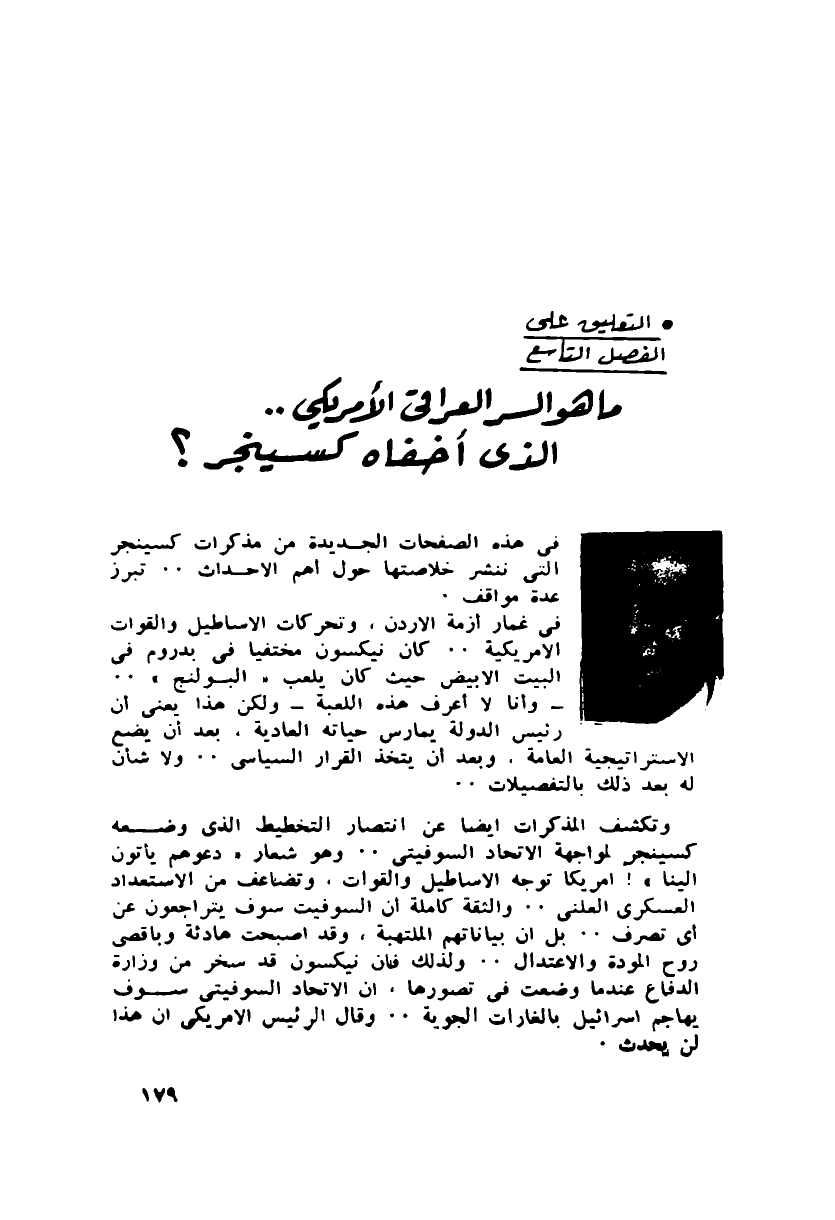 • التعليق على
الفصل التاسع
ما هو السر العراقى الأمريكي ..
الذى أخفاه كسينجر ؟
فى هذه الصفحات الجـديدة من مذكرات كسينجر
التى ننشر خلاصتها حول أهم الاحـداث ٠٠ تبرز
عدة مواقف ٠
فى غمار أزمة الاردن ، وتحركات الاساطيل والقوات
الامريكية ٠٠ كان نيكسون مختفيا فى بدروم فى
البيت الابيض حيث كان يلعب « البـولنج » ٠٠
ـ وأنا لا أعرف هذه اللعبة ـ ولكن هذا يعنى أن
رئيس الدولة يمارس حياته العادية ، بعد أن يضع
الاستراتيجية العامة ، وبعد أن يتخذ القرار السياسى ٠٠ ولا شأن
له بعد ذلك بالتفصيلات ٠٠
وتكشف المذكرات ايضا عن انتصار التخطيط الذى وضـــعه
كسينجر لمواجهة الاتحاد السوفيتى ٠٠ وهو شعار « دعوهم يأتون
الينا » ! امريكا توجه الاساطيل والقوات ، وتضاعف من الاستعداد
العسكرى العلنى ٠٠ والثقة كاملة أن السوفيت سوف يتراجعون عن
أى تصرف ٠٠ بل ان بياناتهم الملتهبة ، وقد اصبحت هادئة وباقصى
روح المودة والاعتدال ٠٠ ولذلك فان نيكسون قد سخر من وزارة
الدفاع عندما وضعت فى تصورها ، ان الاتحاد السوفيتى ســـوف
يهاجم اسرائيل بالغارات الجوية ٠٠ وقال الرئيس الامريكى ان هذا
لن يحدث ٠
١٧٩